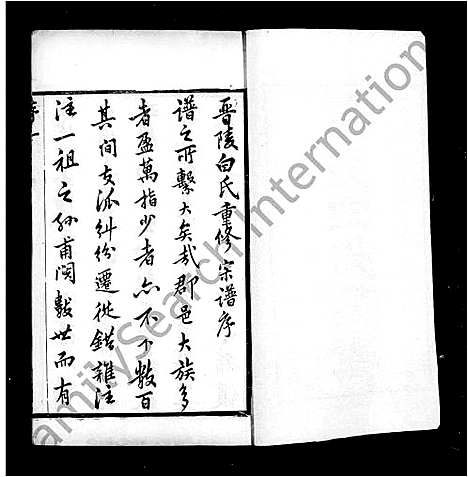 晉陵白氏重修宗谱序
谱之所繫大矣哉郡邑大族多
者盈萬指少者亦不下數百
其间支派纠纷遷徙錯雜往
注一祖之孙甫閱數世而有
序一
FamilySearch International